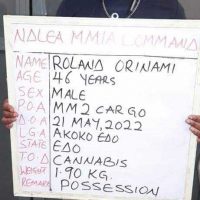 NDLEA MMIA COMMAND
NAME ROLAND ORINAMI
AGE 46 YEARS
SEX MALE
P.O.A MM2 CARGO
D.O.A 21 MAY, 2022
L.G.A AKOKO EDO
STATE EDO
T.O.D CANNABIS
WEIGHT 1.90 KG.
REMARK POSSESSION